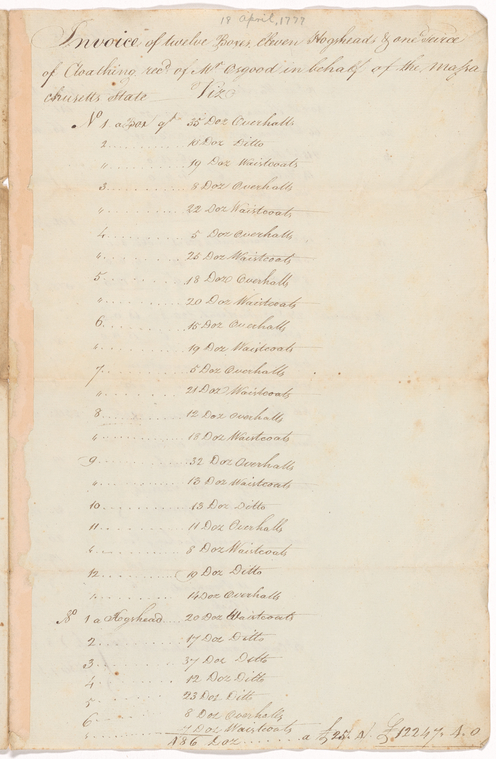 18 April, 1777
Invoice of twelve Boxes, Eleven Hogsheads & one Tierce
of Cloathing recd of Mr Osgood in behalf of the Massa
chusetts State Viz
No 1 a Box qt 35 Doz Overhalls
2 Doz Ditto
" 19 Doz Waistcoats
3 8 Doz Overhalls
" 22 Doz Waistcoats
4 5 Doz Overhalls
" 25 Doz Waistcoats
5 18 Doz Overhalls
" 20 Doz Waistcoats
6 15 Doz Overhalls
" 19 Doz Waistcoats
7 5 Doz Overhalls
" 21 Doz Waistcoats
8 12 Doz Overhalls
" 18 Doz Waistcoats
9 32 Doz Overhalls
" 13 Doz Waistcoats
10 13 Doz Ditto
11 11 Doz Overhalls
" 8 Doz Waistcoats
12 10 Doz Ditto
" 14 Doz Overhalls
No 1 a Hogshead 20 Doz Waistcoats
2 17 Doz Ditto
3 37 Doz Ditto
4 12 Doz Ditto
5 23 Doz Ditto
6 8 Doz Overhalls
" 7 Doz Waistcoats
486 Doz a £25 4/ £12247. 4. 0